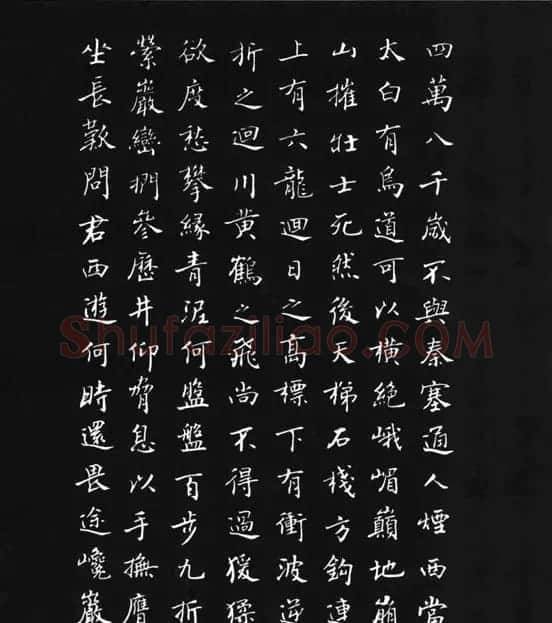 四萬八千歲不與秦塞通人煙西當
太白有鳥道可以橫絕峨嵋巔地崩
山摧壯士死然後天梯石棧方鈎連
上有六龍迴日之高標下有衝波逆
折之迴川黃鶴之飛尚不得過猨猱
欲度愁攀緣青泥何盤盤百步九折
縈巖巒捫參歷井仰脅息以手撫膺
坐長歎問君西遊何時還畏途巉巖
Shufaziliao.COM